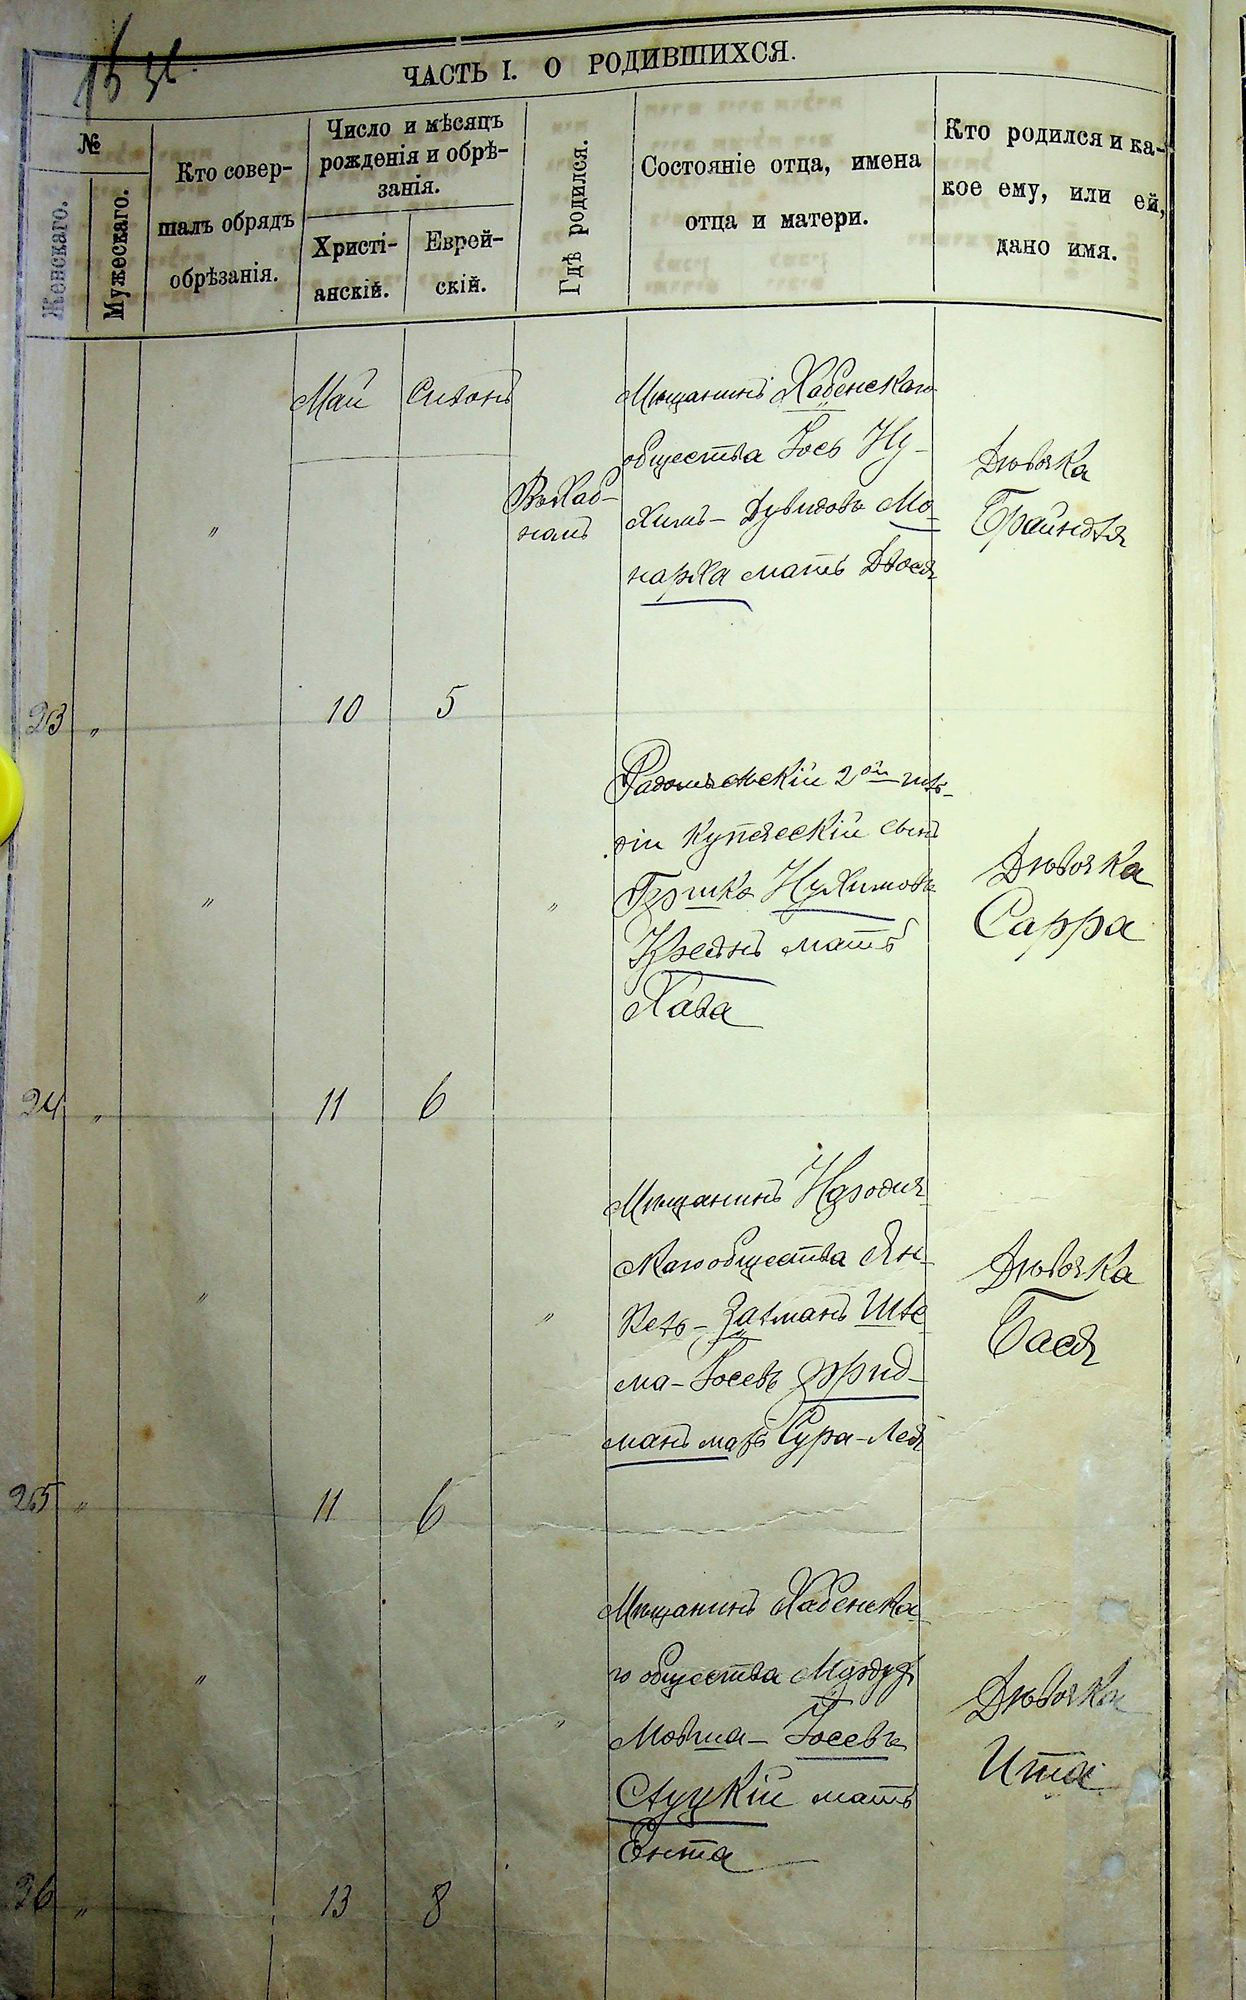 ЧАСТЬ I. О РОДИВШИХСЯ.
№
Женскаго.
Мужескаго.
Кто совер-
шалъ обрядъ
обрѣзанія.
Число и мѣсяцъ
рожденія и обрѣ-
занія.
Христі-
анскій.
Еврей-
скій.
Гдѣ родился.
Состояніе отца, имена
отца и матери.
Кто родился и ка-
кое ему, или ей,
дано имя.
Май
Сивонъ
Въ Хаб-
номъ
Мѣщанинъ Хабенскаго
общества Іось Ну-
химъ-Дувидовъ Мо-
нарха мать Двося
Дѣвочка
Брайндля
"
23 "
10
5
Радомысльскій 2ой гиль-
діи купеческій сынъ
Гершко Нухимовъ
мать
Хава
Дѣвочка
Сарра
"
"
24 "
11
6
Мѣщанинъ Народич
скаго общества Ян-
кель-Залманъ Шле
ма-Іосевъ Фрид-
манъ мать Сура-Лея
Дѣвочка
Бася
"
"
25 "
11
6
Мѣщанинъ Хабенска
го общества Мордух
Мовша-Іосевъ
Слуцкій мать
Ента
Дѣвочка
Ита
"
"
26 "
13
8